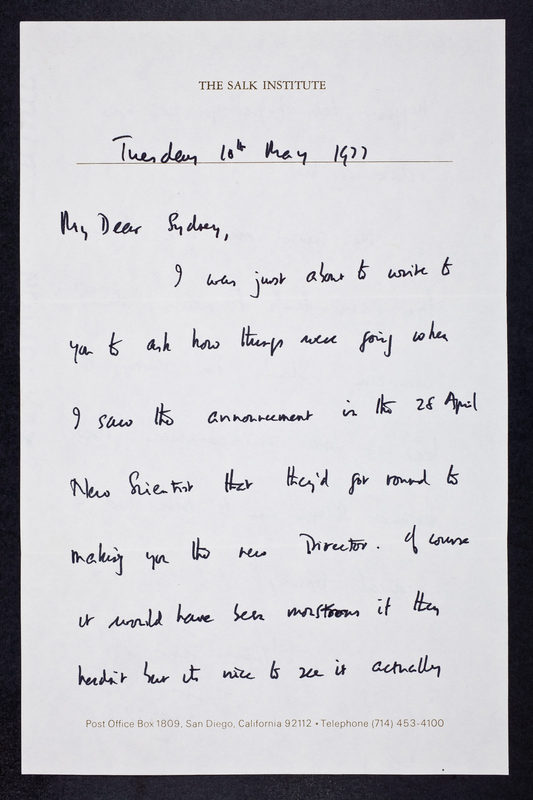 THE SALK INSTITUTE
Tuesday 10th May 1977
My Dear Sydney,
I was just about to write to
you to ask how things were going when
I saw the announcement in the 28 April
New Scientist that they'd got round to
making you the new Director. Of course
it would have been monstrous if they
hadn't but its nice to see it actually
Post Office Box 1809, San Diego, California 92112 • Telephone (714) 453-4100